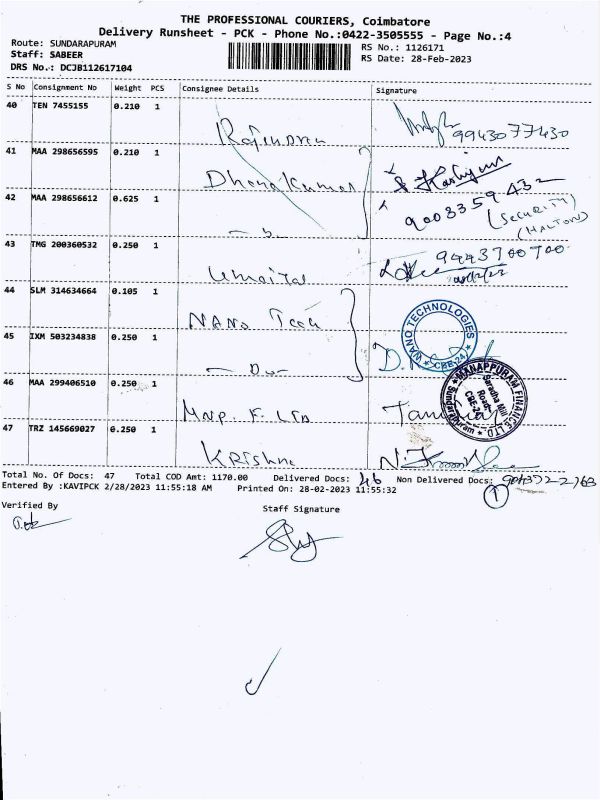 THE PROFESSIONAL COURIERS, Coimbatore
Delivery Runsheet - PCK - Phone No.:0422-3505555 - Page No.:4
Route: SUNDARAPURAM
RS No.: 1126171
Staff: SABEER
RS Date: 28-Feb-2023
DRS No.: DCJB112617104
S No Consignment No Weight PCS Consignee Details Signature
40 TEN 7455155 0.210 1
9943077430
41 MAA 298656595 0.210 1 Dhanakumar
42 MAA 298656612 0.625 1 9003359432
(Security)
(HALTON)
43 TMG 200360532 0.250 1 9443700700
44 SLM 314634664 0.105 1 NANO Tech
NANO TECHNOLOGIES
★ CBE-24 ★
45 IXM 503234838 0.250 1 - Do -
46 MAA 299406510 0.250 1 Mnp. F. LTD
MANAPPURAM FINANCE LTD.
Saradha Mill
Road
CBE-24
Sundarapuram
47 TRZ 145669027 0.250 1 Krishna
Total No. Of Docs: 47 Total COD Amt: 1170.00 Delivered Docs: 46 Non Delivered Docs:
1
Entered By :KAVIPCK 2/28/2023 11:55:18 AM Printed On: 28-02-2023 11:55:32
Verified By
Staff Signature